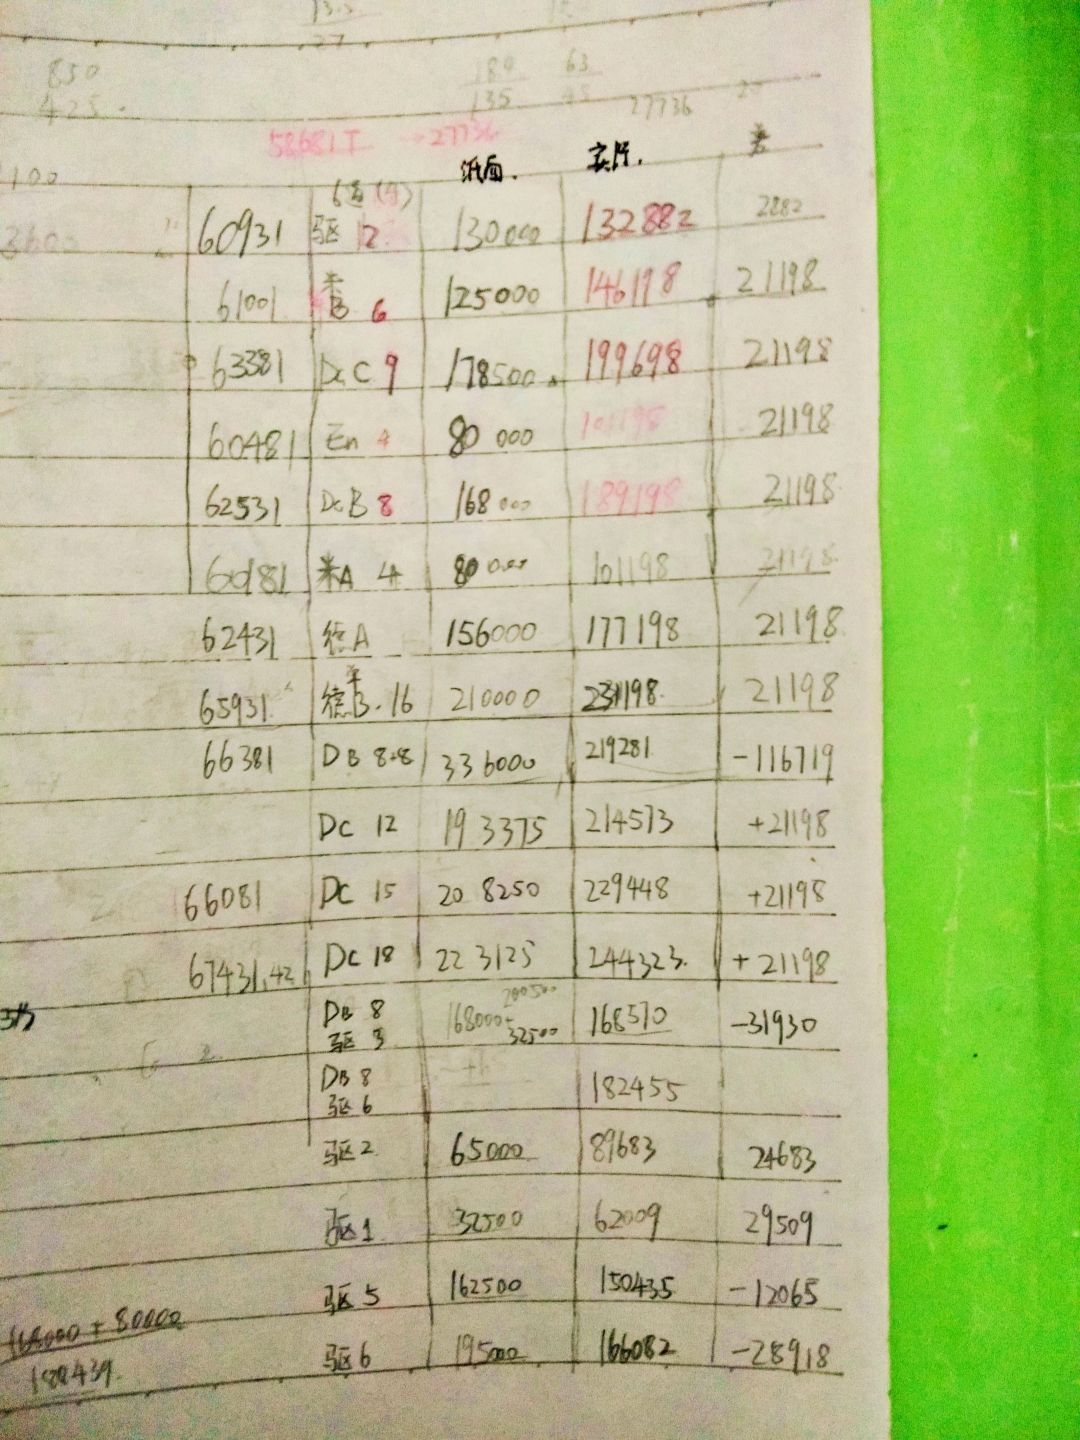 27
850 180 63
425 135 45 27736
58681 27736
纸面. 实际. 差
1100 6
60931 驱 12 130000 132882 2882
61001 米B 6 125000 146198 21198
63381 DcC 9 178500 199698 21198
60481 En 4 80 000 101198 21198
62531 DcB 8 168 000 189198 21198
60181 米A 4 80 000 101198 21198
62431 德A 156000 177198 21198
65931 德B. 16 210000 231198. 21198
66381 DB 8+8 336000 219281 -116719
DC 12 193375 214573 +21198
66081 DC 15 208250 229448 +21198
67431.42 DC 18 223125 244323. +21198
DB 8 168000+ 200500 168570 -31930
驱 3 32500
DB 8 182455
驱 6
驱 2 65000 89683 24683
驱 1 32500 62009 29509
驱 5 162500 150435 -12065
168000 + 80000
驱 6 195000 166082 -28918